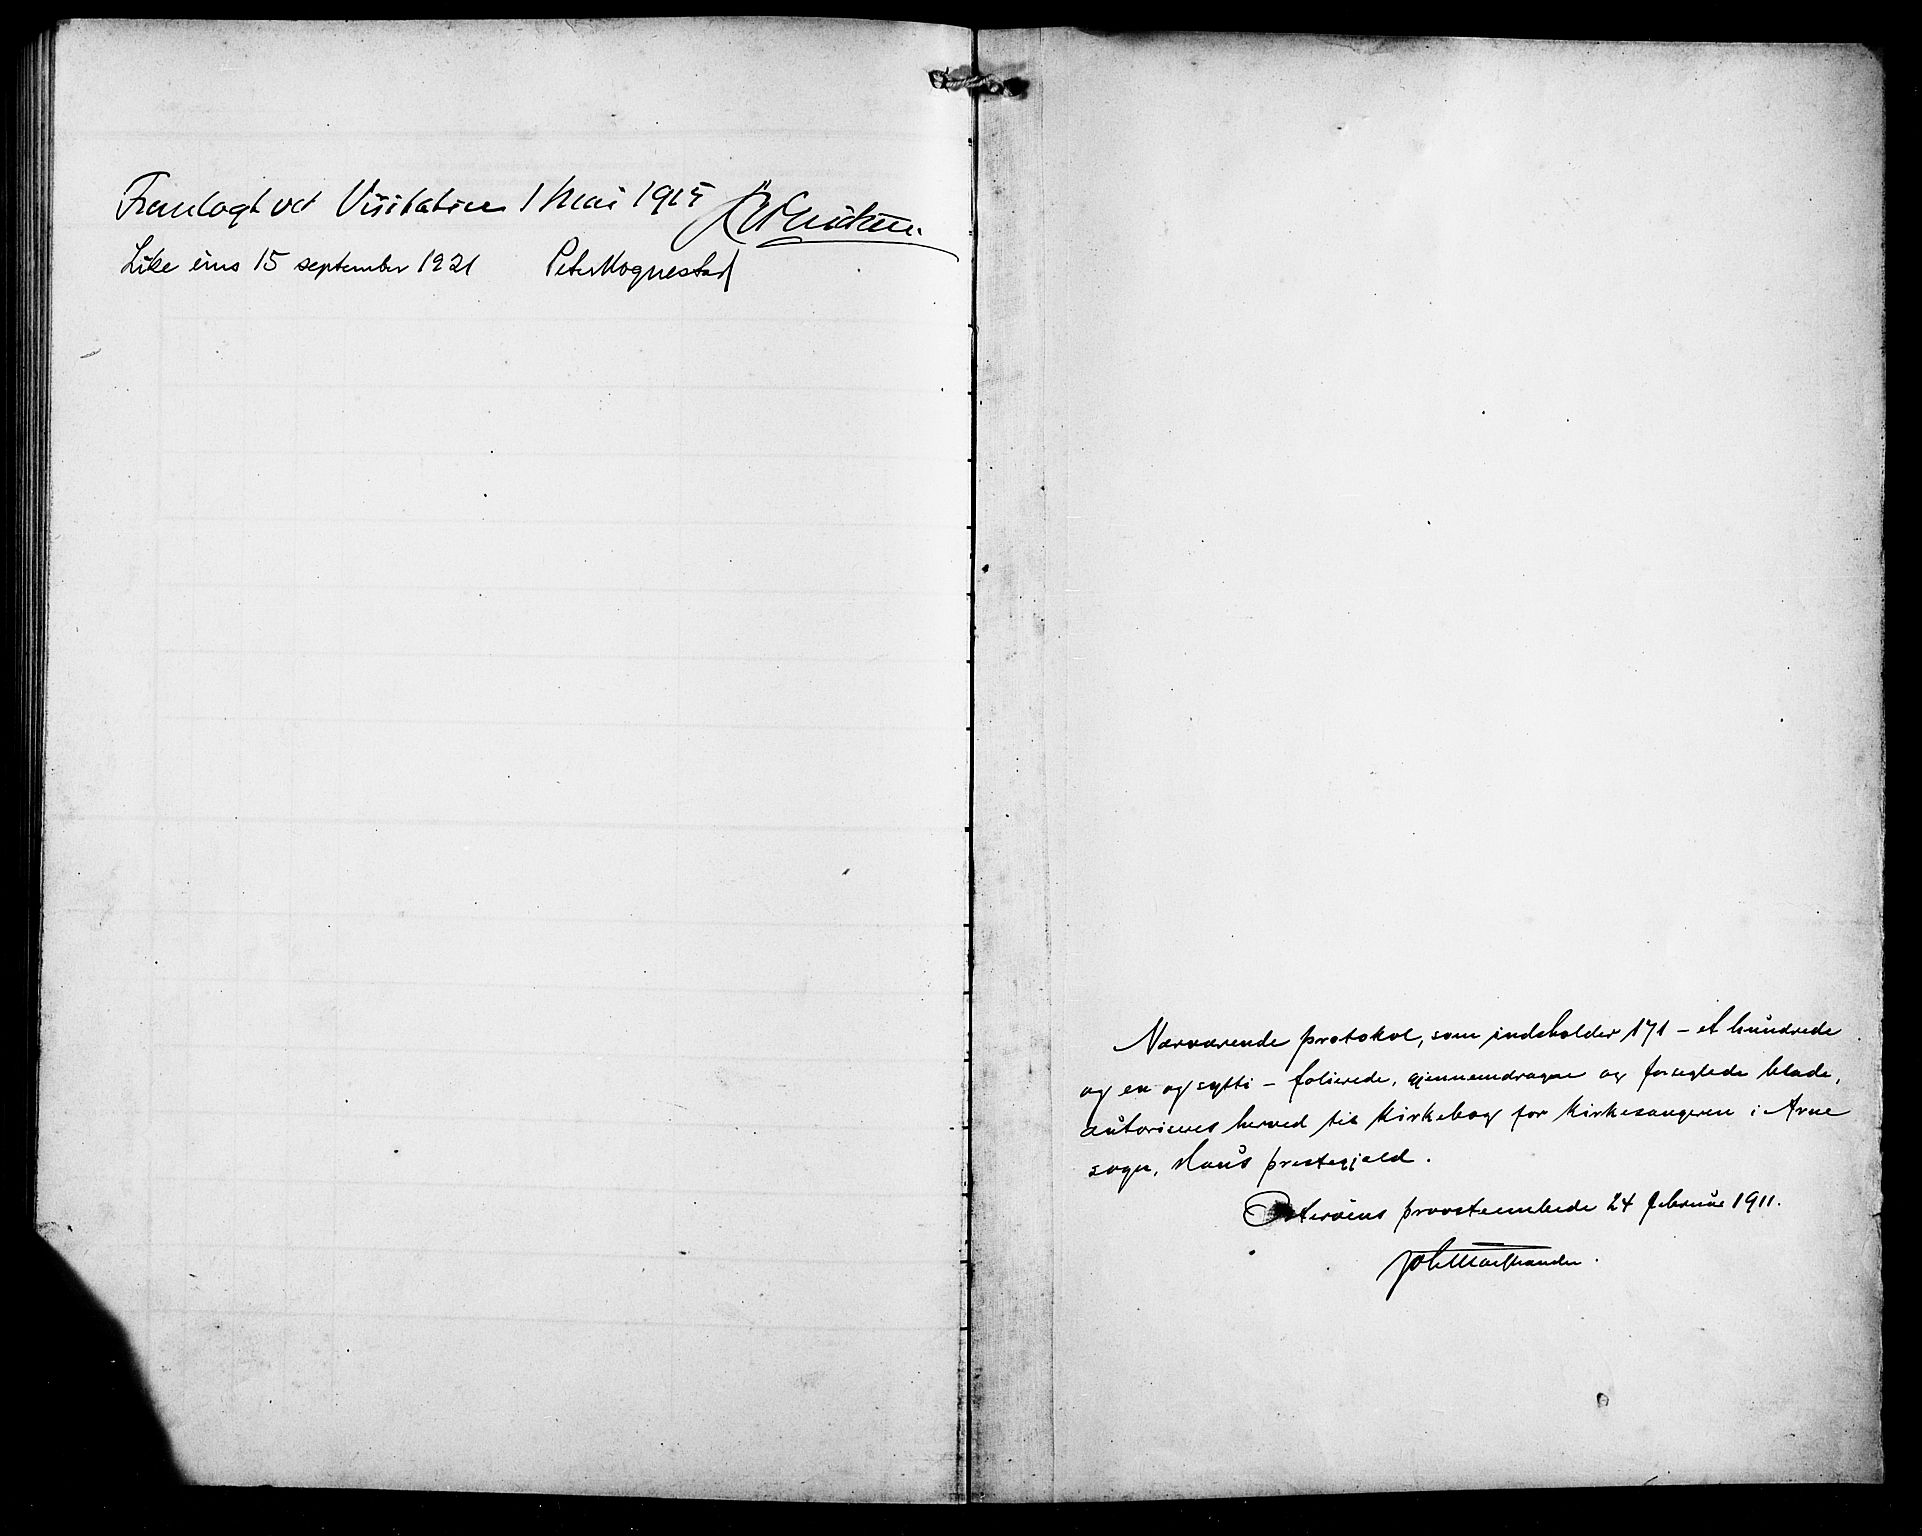 Fremlagt ved Visitatsen 1 Mai 1915
Like eins 15 september 1921 Peter Hognestad
Nærværende protokol, som indeholder 171 – et hundrede
og en og sytti – folierede, gjennemdragne og forseglede blade,
autoriseres herved til kirkebog for kirkesangeren i Arne
sogn, Haus prestegjeld.
Osterøens provsteembede 24 februar 1911.